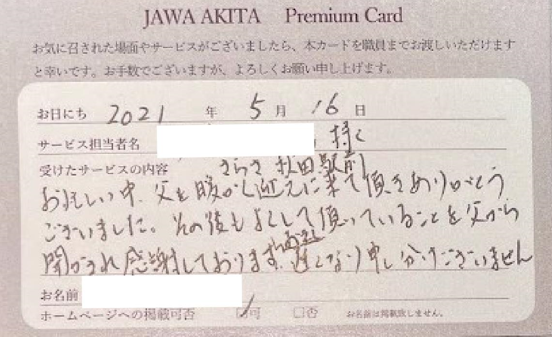 JAWA AKITA Premium Card
お気に召された場面やサービスがございましたら、本カードを職員までお渡しいただけます
と幸いです。お手数でございますが、よろしくお願い申し上げます。
お日にち 2021 年 5 月 16 日
サービス担当者名 様へ
きらさ 秋田駅前
受けたサービスの内容
お忙しい中、父を暖かく迎えに来て頂きありがとう
ございました。その後もよくして頂いていることを父から
聞かされ感謝しております。遅くなり申し分けございません
お名前
ホームページへの掲載可否 可 否 お名前は掲載致しません。